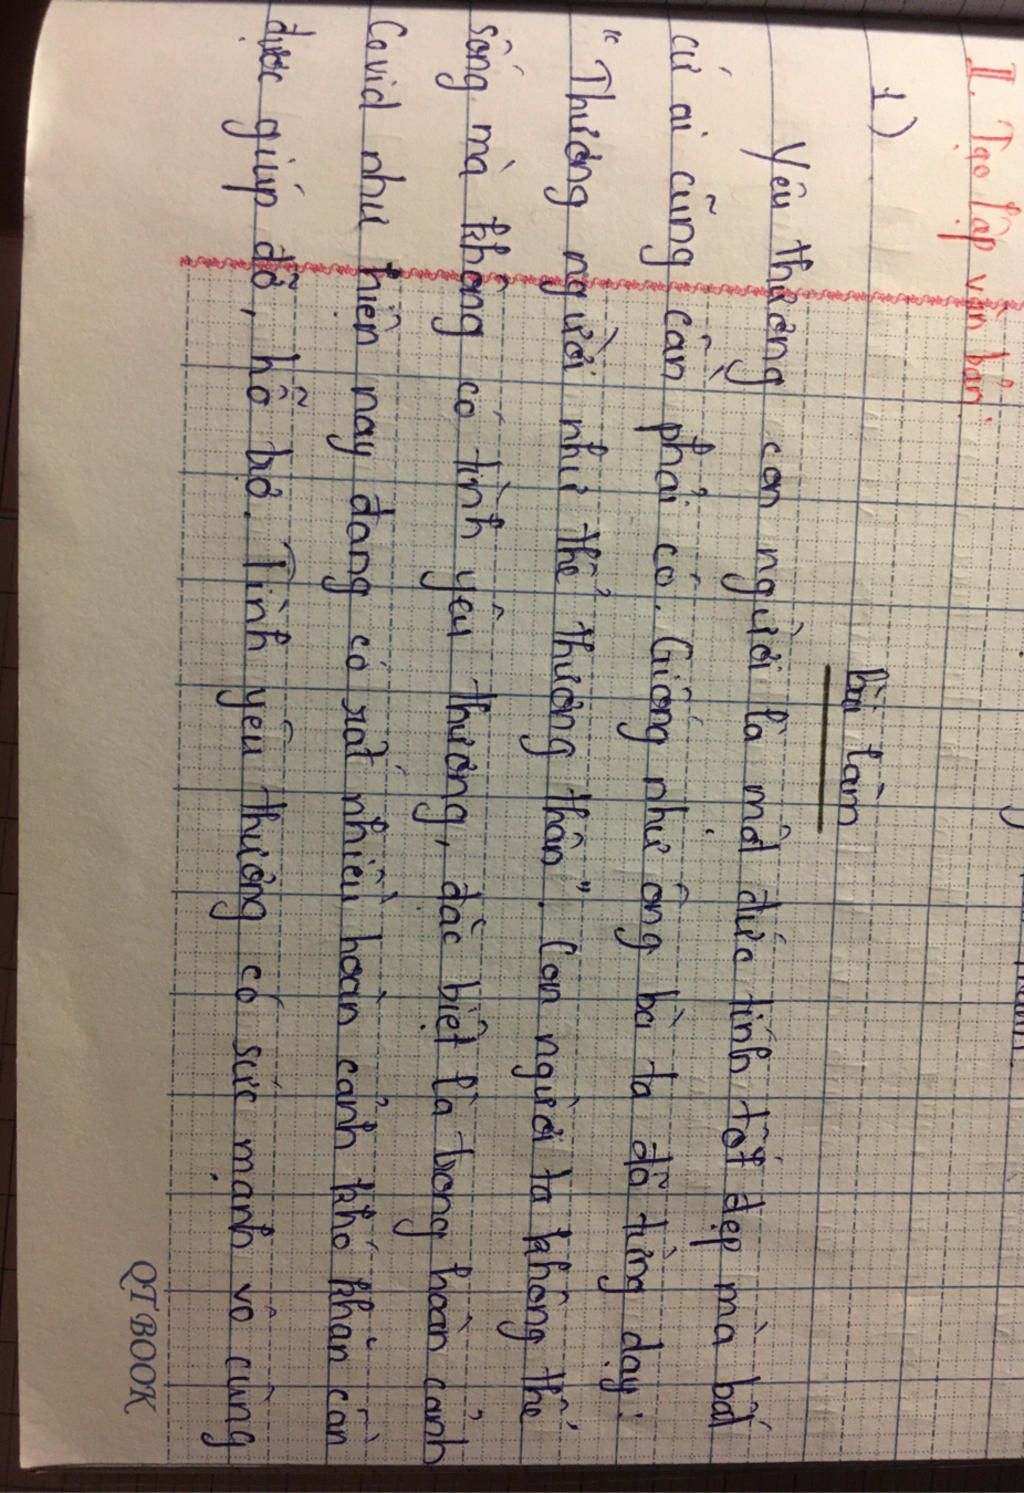 II. Tạo lập văn bản.
1)
Bài làm
Yêu thương con người là một đức tính tốt đẹp mà bất
cứ ai cũng cần phải có. Giống như ông bà ta đã từng dạy:
"Thương người như thể thương thân". Con người ta không thể
sống mà không có tình yêu thương, đặc biệt là trong hoàn cảnh
Covid như hiện nay đang có rất nhiều hoàn cảnh khó khăn cần
được giúp đỡ, hỗ trợ. Tình yêu thương có sức mạnh vô cùng
QT BOOK